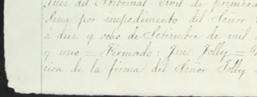 Juez del Tribunal Civil de primera
Rosa por impedimento del Señor
a diez y ocho de Setiembre de mil
y uno = Firmado: José Tolly =
cion de la firma del Señor Tolly